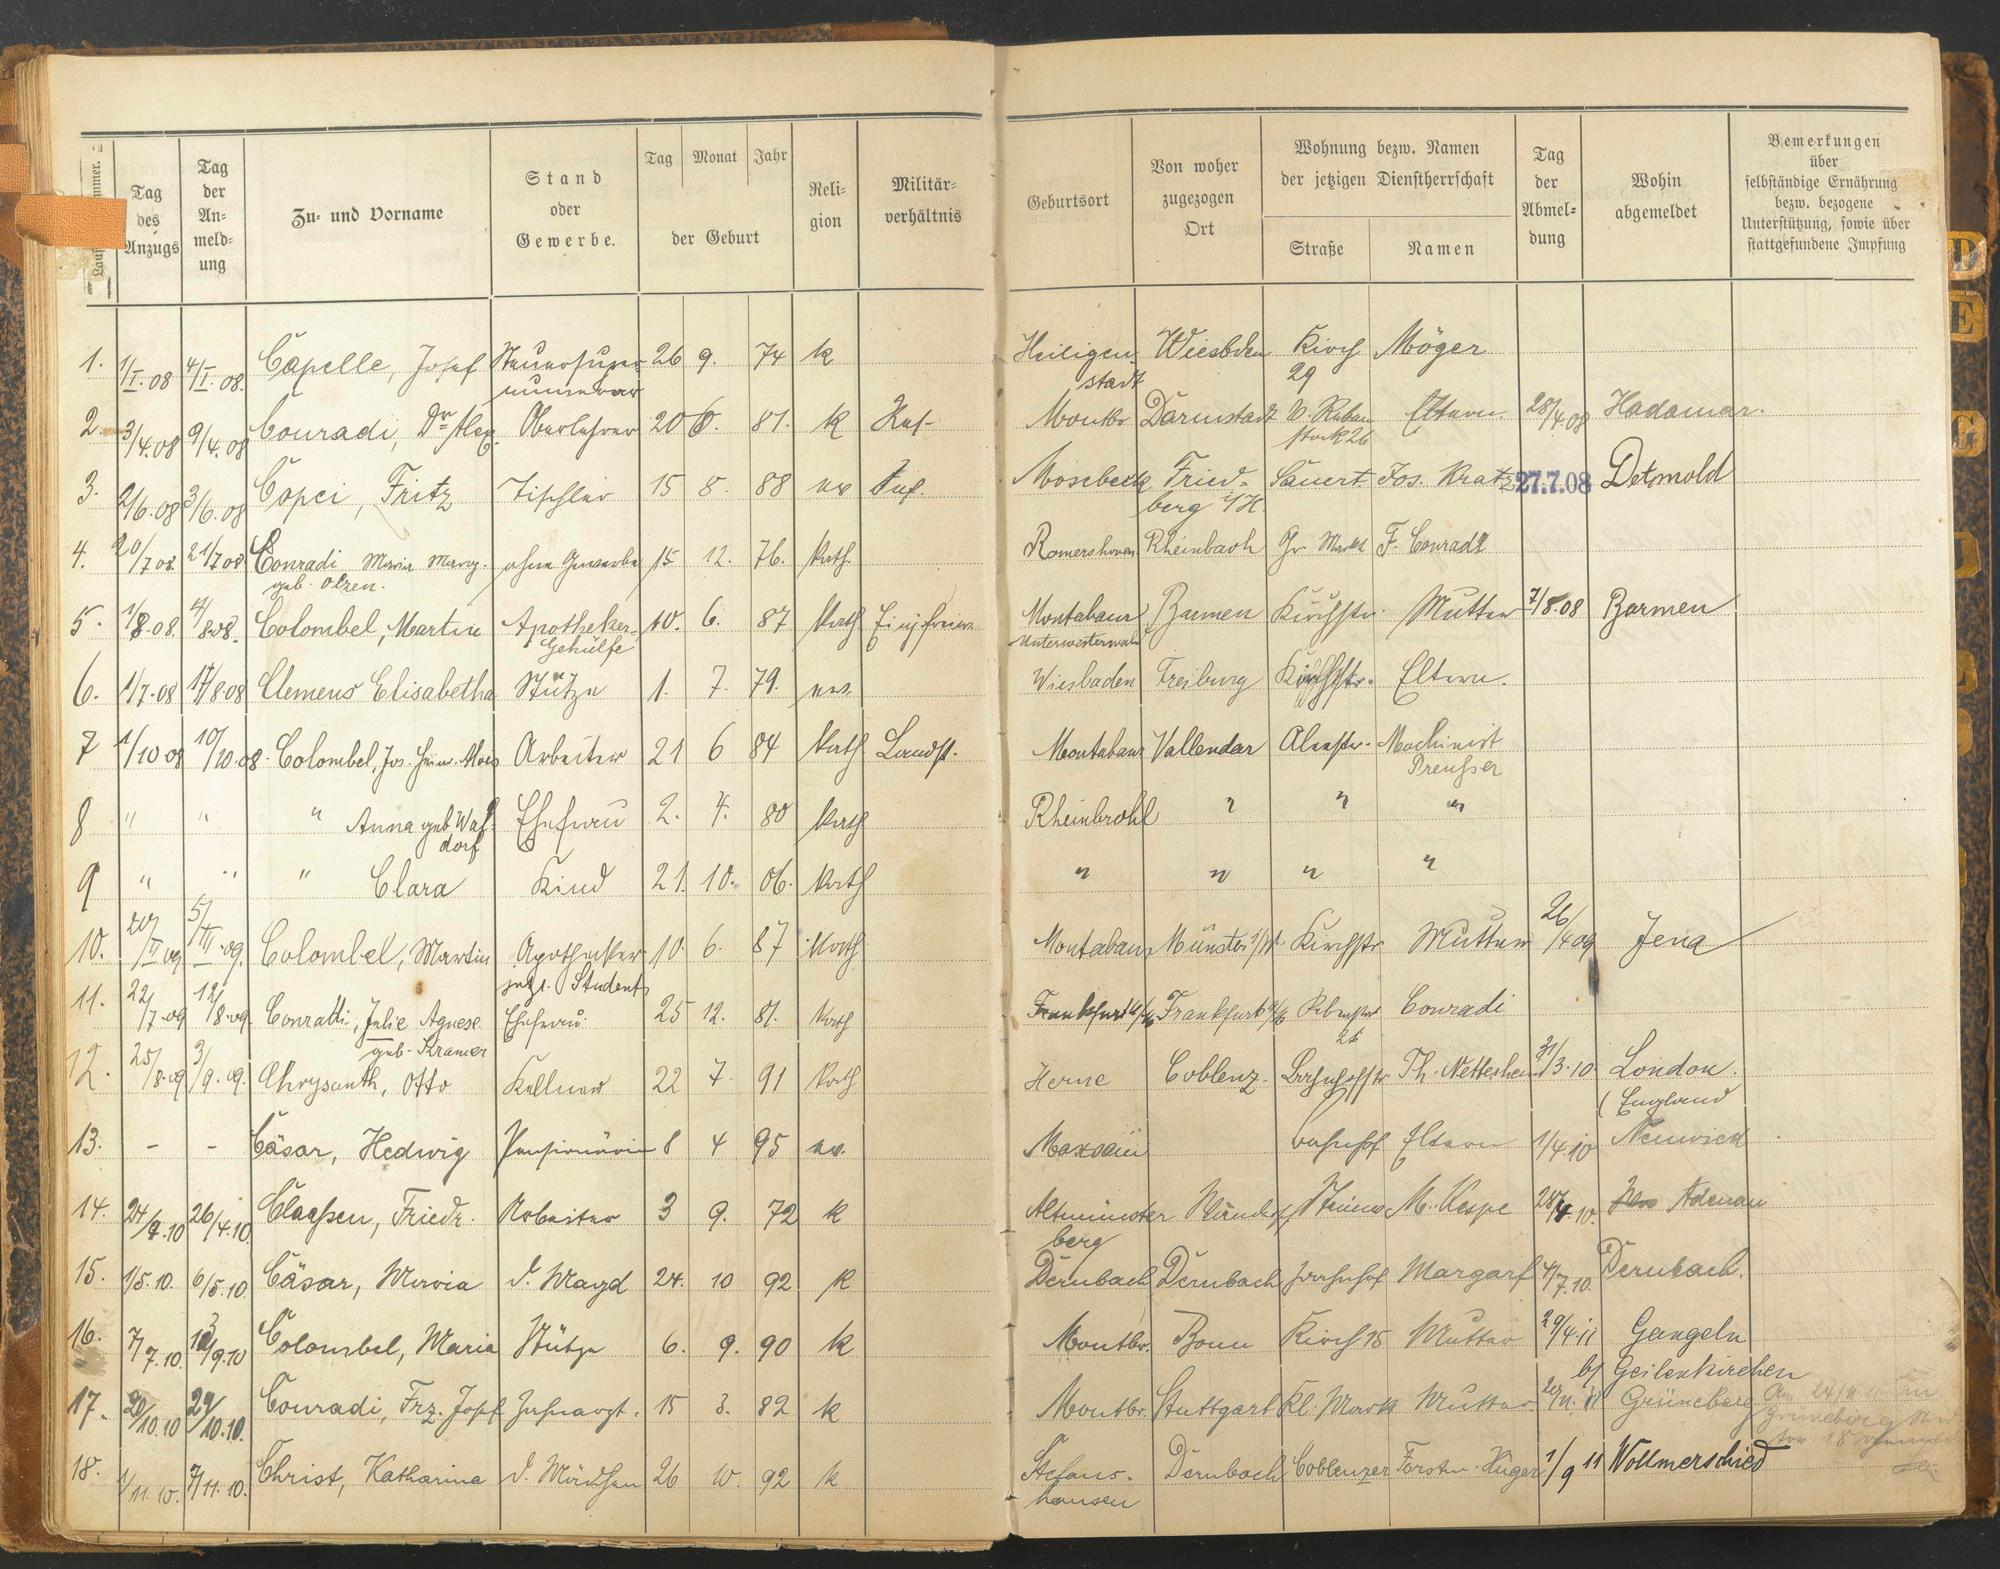 Tag des Anzugs
Tag der An= meld= ung
Zu= und Vorname
Stand oder Gewerbe.
Tag Monat Jahr
der Geburt
Reli= gion
Militär= verhältnis
Geburtsort
Von woher zugezogen Ort
Wohnung bezw. Namen der jetzigen Dienstherrschaft
Straße Namen
Tag der Abmel= dung
Wohin abgemeldet
Bemerkungen über selbständige Ernährung bezw. bezogene Unterstützung, sowie über stattgefundene Impfung
1. 1/I.08 4/I.08. Capelle, Josef Steuersuper- 26 9. 74 k Heiligen- Wiesbden Kirch Möger
numerar stadt 29
2. 3/4.08 9/4.08 Conradi, Dr Oberlehrer 20 6. 81. k Montbr Darmstadt Eltern. 28/4.08 Hadamar.
3. 2/6.08 3/6.08 Copei, Fritz Tischler 15 8. 88 ev Inf. Mosebeck Fried- Sauert. Jos. Kratz 27.7.08 Detmold
berg i/H.
4. 20/7 08. 21/7 08 Conradi Maria Marg. ohne Gewerbe 15. 12. 76. kath. Romershoven Rheinbach Gr Markt F. Conradi
geb. Olzen.
5. 1/8.08. 4/8.08. Colombel, Martin Apotheker- 10. 6. 87 kath Montabaur Barmen Kirchstr. Mutter 7/8.08 Barmen
Gehülfe Unterwesterwald
6. 1/7.08 17/8.08 Clemens Elisabetha Stütze 1. 7. 79. ev. Wiesbaden Freiburg Kirchstr. Eltern.
7 1/10 08 10/10.08. Colombel, Jos. Heinr. Alois Arbeiter 21 6 84 kath Landst. Montabaur Vallendar Machinist
Preusser
8 " " " Anna geb. Wal- Ehefrau 2. 4. 80 kath Rheinbrohl " " "
dorf
9 " " " Clara Kind 21. 10. 06. kath " " " "
10. 20/II 09 5/III.09. Colombel, Martin Apotheker 10. 6. 87 kath Montabaur Münster i/W. Kirchstr Mutter 26/4 09 Jena
Student
11. 22/7.09 12/8.09. Conradi, Julie Agnese Ehefrau. 25 12. 81. kath Frankfurt a/M Frankfurt a/M Conradi
geb. Kramer 26
12. 25/8.09 3/9.09. Chrysanth, Otto Kellner 22 7. 91 kath Herne Coblenz. Bahnhofstr Th. Netteshein 31/3.10 London.
(England
13. - - Cäsar, Hedwig Pensionärin 8 4 95 ev. Maxsain Bahnhof Eltern 1/4.10 Neuwied
14. 24/4.10 26/4.10. Claeßen, Friedr. Arbeiter 3 9. 72 k Altmünster M. Kespe 28/4.10. Adenau
berg
15. 1/5.10. 6/5.10. Cäsar, Maria d. Magd 24. 10 92 k Dernbach Dernbach Bahnhof Margarf 4/7.10. Dernbach.
16. 7/7.10. 13/9.10 Colombel, Maria Stütze 6. 9. 90 k Montbr. Bonn Kirch 15 Mutter 29/4.11 Gangeln
b/ Geilenkirchen
17. 20/10.10 29/10.10. Conradi, Frz. Josef Zahnarzt. 15 3. 82 k Montbr. Stuttgart Kl. Markt Mutter Grüneberg
18. 1/11.10. 7/11.10. Christ, Katharina d. Mädchen 26 10. 92 k Stefans- Dernbach Coblenzer Förster Hüger 1/9 11 Wollmerschied
hausen
D
E
G